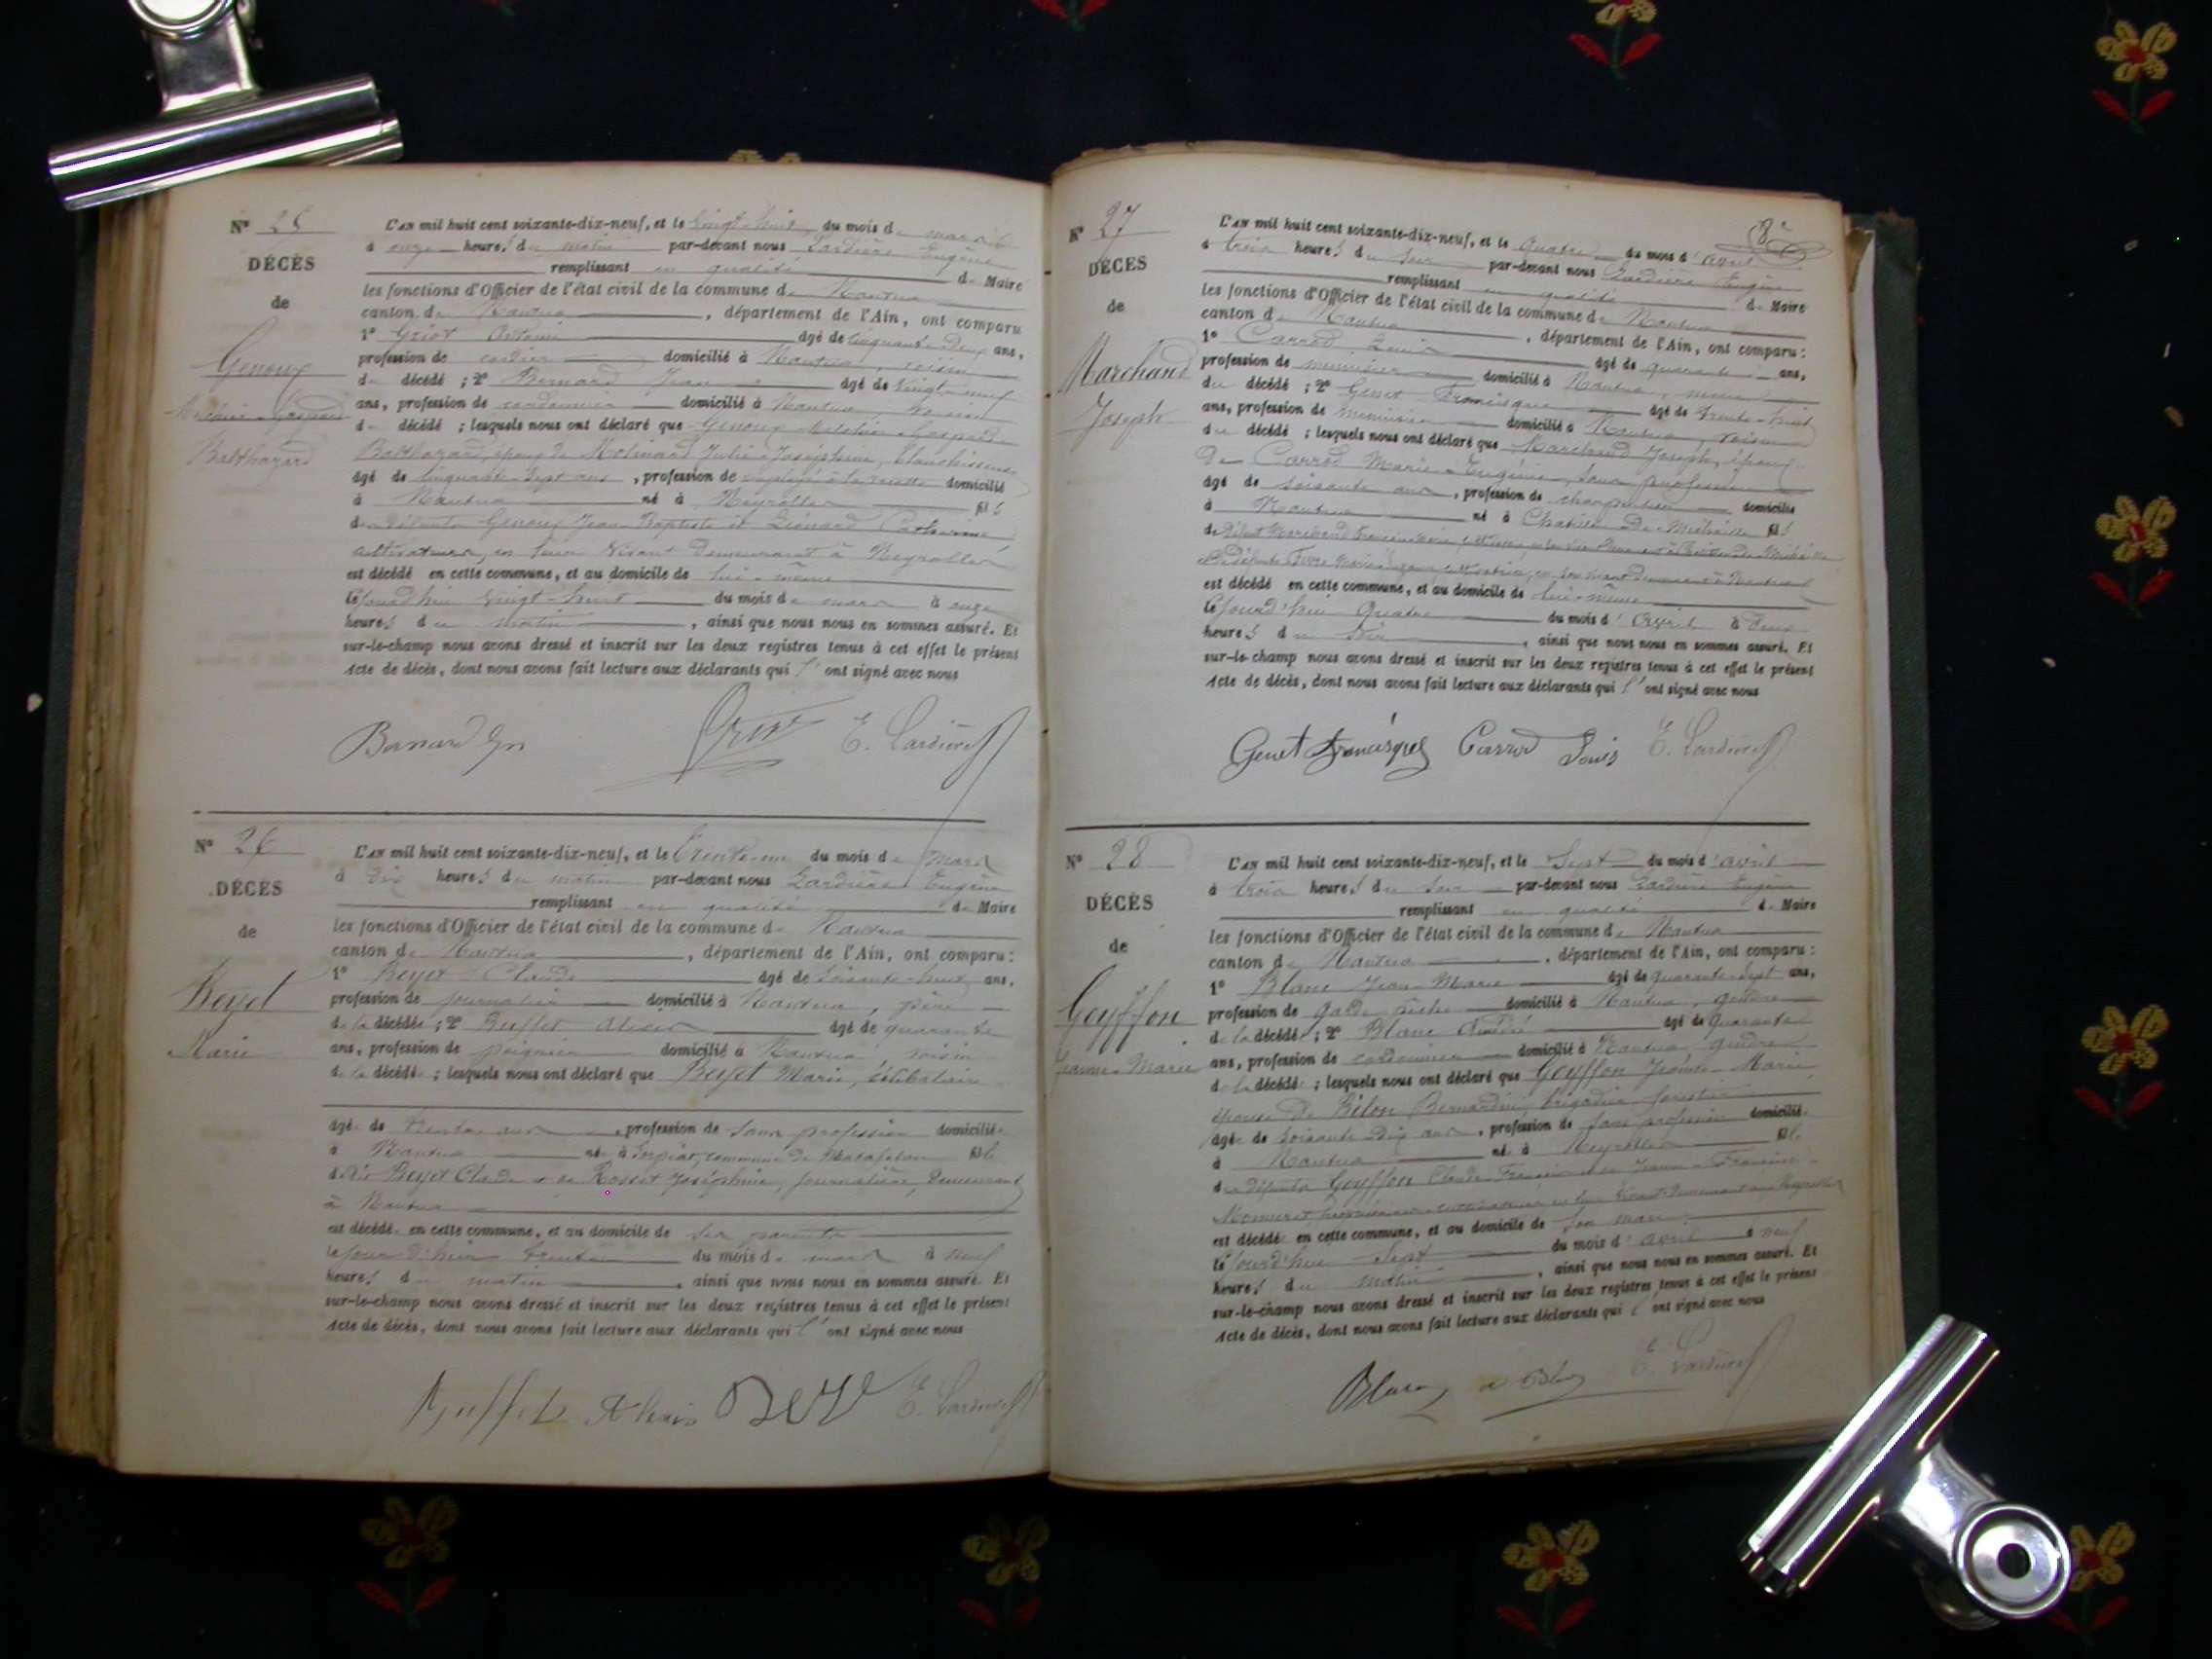 N° 25
DÉCÈS
de
Genoux
Melchior-Gaspard
Balthazard
L'AN mil huit cent soixante-dix-neuf, et le vingt-huit du mois de mars
à onze heures du matin par-devant nous Lardière Eugène
remplissant en qualité de Maire
les fonctions d'Officier de l'état civil de la commune de Nantua
canton de Nantua, département de l'Ain, ont comparu
1° Griot Antoine âgé de cinquante-deux ans,
profession de cordier domicilié à Nantua, voisin
du décédé ; 2° Bernard Jean âgé de vingt-neuf
ans, profession de cordonnier domicilié à Nantua, voisin
du décédé ; lesquels nous ont déclaré que Genoux Melchior-Gaspard
Balthazard, époux de Molinard Julie-Joséphine, blanchisseuse
âgé de cinquante-sept ans, profession de employé à la recette domicilié
à Nantua né à Neyrolles fils
de défunts Genoux Jean-Baptiste et Léonard Catherine
cultivateurs, en leur vivant demeurant à Neyrolles
est décédé en cette commune, et au domicile de lui-même
cejourd'hui vingt-huit du mois de mars à onze
heures du matin, ainsi que nous nous en sommes assuré. Et
sur-le-champ nous avons dressé et inscrit sur les deux registres tenus à cet effet le présent
Acte de décès, dont nous avons fait lecture aux déclarants qui l'ont signé avec nous
Bernard Jn Griot E. Lardière
N° 26
DÉCÈS
de
Beyet
Marie
L'AN mil huit cent soixante-dix-neuf, et le trente-un du mois de mars
à dix heures du matin par-devant nous Lardière Eugène
remplissant en qualité de Maire
les fonctions d'Officier de l'état civil de la commune de Nantua
canton de Nantua, département de l'Ain, ont comparu :
1° Beyet Claude âgé de soixante-huit ans,
profession de journalier domicilié à Nantua, père
de la décédée ; 2° Buffet Alexis âgé de quarante
ans, profession de peignier domicilié à Nantua, voisin
de la décédée ; lesquels nous ont déclaré que Beyet Marie, célibataire
âgée de trente ans, profession de sans profession domiciliée
à Nantua née à commune de Matafelon fille
de Beyet Claude et de Rosset Joséphine, journalière, demeurant
à Nantua
est décédée en cette commune, et au domicile de ses parents
cejour d'hier trente du mois de mars à neuf
heures du matin, ainsi que nous nous en sommes assuré. Et
sur-le-champ nous avons dressé et inscrit sur les deux registres tenus à cet effet le présent
Acte de décès, dont nous avons fait lecture aux déclarants qui l'ont signé avec nous
Buffet Alexis E. Lardière
N° 27
DÉCÈS
de
Marchand
Joseph
L'AN mil huit cent soixante-dix-neuf, et le quatre du mois d'avril
à trois heures du soir par-devant nous Lardière Eugène
remplissant en qualité de Maire
les fonctions d'Officier de l'état civil de la commune de Nantua
canton de Nantua, département de l'Ain, ont comparu :
1° Carrod Louis âgé de quarante ans,
profession de menuisier domicilié à Nantua, neveu
du décédé ; 2° Genet Francisque âgé de trente-huit
ans, profession de menuisier domicilié à Nantua, voisin
du décédé ; lesquels nous ont déclaré que Marchand Joseph, époux
de Carrod Marie-Eugénie, sans profession
âgé de soixante ans, profession de charpentier domicilié
à Nantua né à Chatillon-de-Michaille fils
est décédé en cette commune, et au domicile de lui-même
cejourd'hui quatre du mois d'avril à deux
heures du soir, ainsi que nous nous en sommes assuré. Et
sur-le-champ nous avons dressé et inscrit sur les deux registres tenus à cet effet le présent
Acte de décès, dont nous avons fait lecture aux déclarants qui l'ont signé avec nous
Genet Francisque Carrod Louis E. Lardière
N° 28
DÉCÈS
de
Goyffon
Jeanne-Marie
L'AN mil huit cent soixante-dix-neuf, et le sept du mois d'avril
à trois heures du soir par-devant nous Lardière Eugène
remplissant en qualité de Maire
les fonctions d'Officier de l'état civil de la commune de Nantua
canton de Nantua, département de l'Ain, ont comparu :
1° Blanc Jean-Marie âgé de quarante-sept ans,
profession de garde pêche domicilié à Nantua, gendre
de la décédée ; 2° Blanc André âgé de quarante
ans, profession de cordonnier domicilié à Nantua gendre
de la décédée ; lesquels nous ont déclaré que Goyffon Jeanne-Marie
épouse de Bernardin, brigadier forestier
âgée de soixante dix ans, profession de sans profession domiciliée
à Nantua née à Neyrolles fille
de défunts Goyffon Claude-François et de Jeanne-Françoise
est décédée en cette commune, et au domicile de son mari
cejourd'hui sept du mois d'avril à neuf
heures du matin, ainsi que nous nous en sommes assuré. Et
sur-le-champ nous avons dressé et inscrit sur les deux registres tenus à cet effet le présent
Acte de décès, dont nous avons fait lecture aux déclarants qui l'ont signé avec nous
Blanc a Blanc E. Lardière